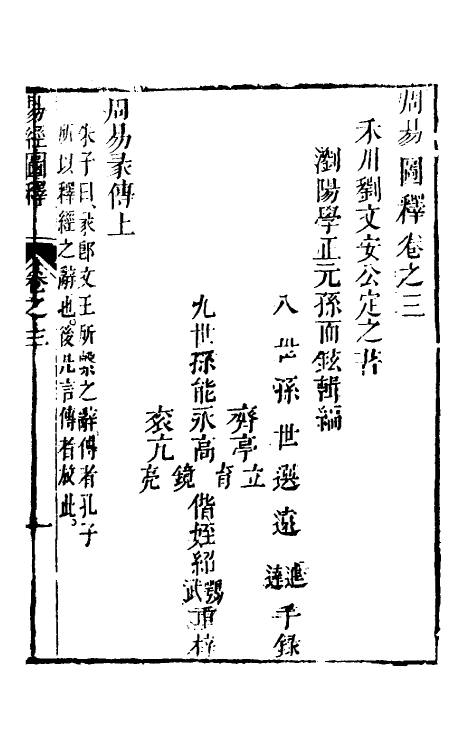 周易圖釋卷之三
禾川劉文安公定之著
瀏陽學正元孫而鉉輯編
八世孫世選遠進達手錄
齊亭立育
九世孫能永高鏡偕姪紹鶚武重梓
袞亢亮
周易彖傳上
朱子曰彖即文王所繫之辭傳者孔子
所以釋經之辭也。後凡言傳者放此。
易經圖釋 卷之三